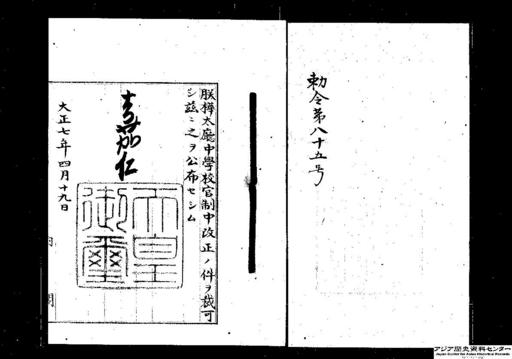 勅令第八十五号
朕樺太廳中學校官制中改正ノ件ヲ裁可
シ茲ニ之ヲ公布セシム
嘉仁
天皇
御璽
大正七年四月十九日
内閣
アジア歴史資料センター
Japan Center for Asian Historical Records